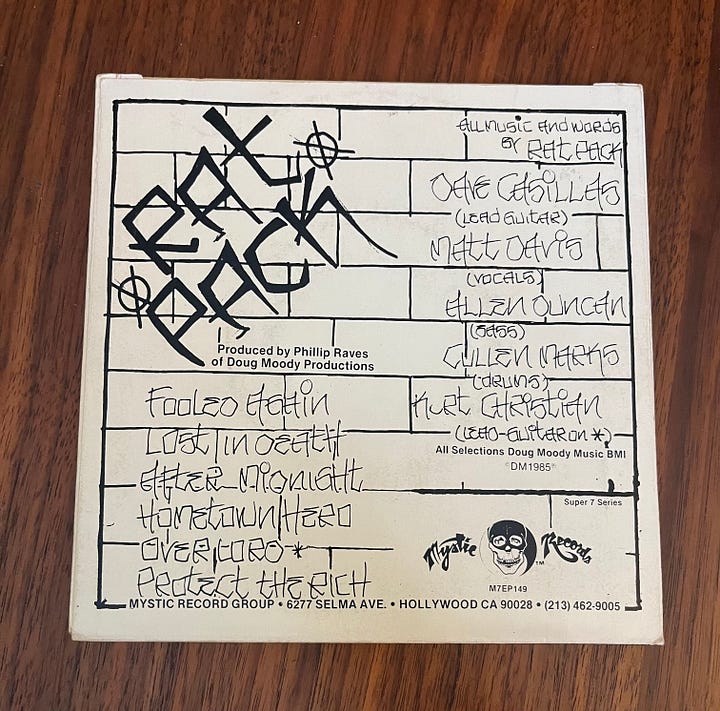 RAT
PACK
Produced by Phillip Raves
of Doug Moody Productions
FOOLED AGAIN
LOST IN DEATH
AFTER MIDNIGHT
HOMETOWN HERO
OVERLORD *
PROTECT THE RICH
ALL MUSIC AND WORDS
BY RAT PACK
DAVE CASILLAS
(LEAD GUITAR)
MATT DAVIS
(VOCALS)
ALLEN DUNCAN
(BASS)
CULLEN MARKS
(DRUMS)
KURT CHRISTIAN
(LEAD-GUITAR ON *)
All Selections Doug Moody Music BMI
©DM1985℗
Super 7 Series
Mystic Records
TM
M7EP149
MYSTIC RECORD GROUP • 6277 SELMA AVE. • HOLLYWOOD CA 90028 • (213) 462-9005